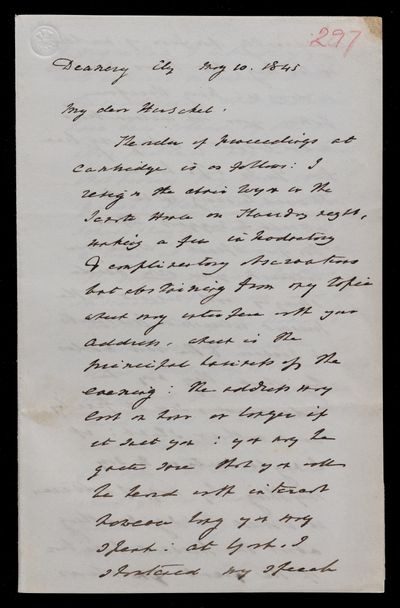 297
Deanery Ely May 10. 1845
My dear Herschel.
The order of proceedings at
Cambridge is as follows: I
resign the chair to you in the
Senate House on Thursday night,
making a few introductory
& complimentary observations
but abstaining from any topic
which may interfere with your
address, which is the
principal business of the
evening: the address may
last an hour or longer if
it suit you: you may be
quite sure that you will
be heard with interest
however long you may
speak: at York, I
shortened my speech